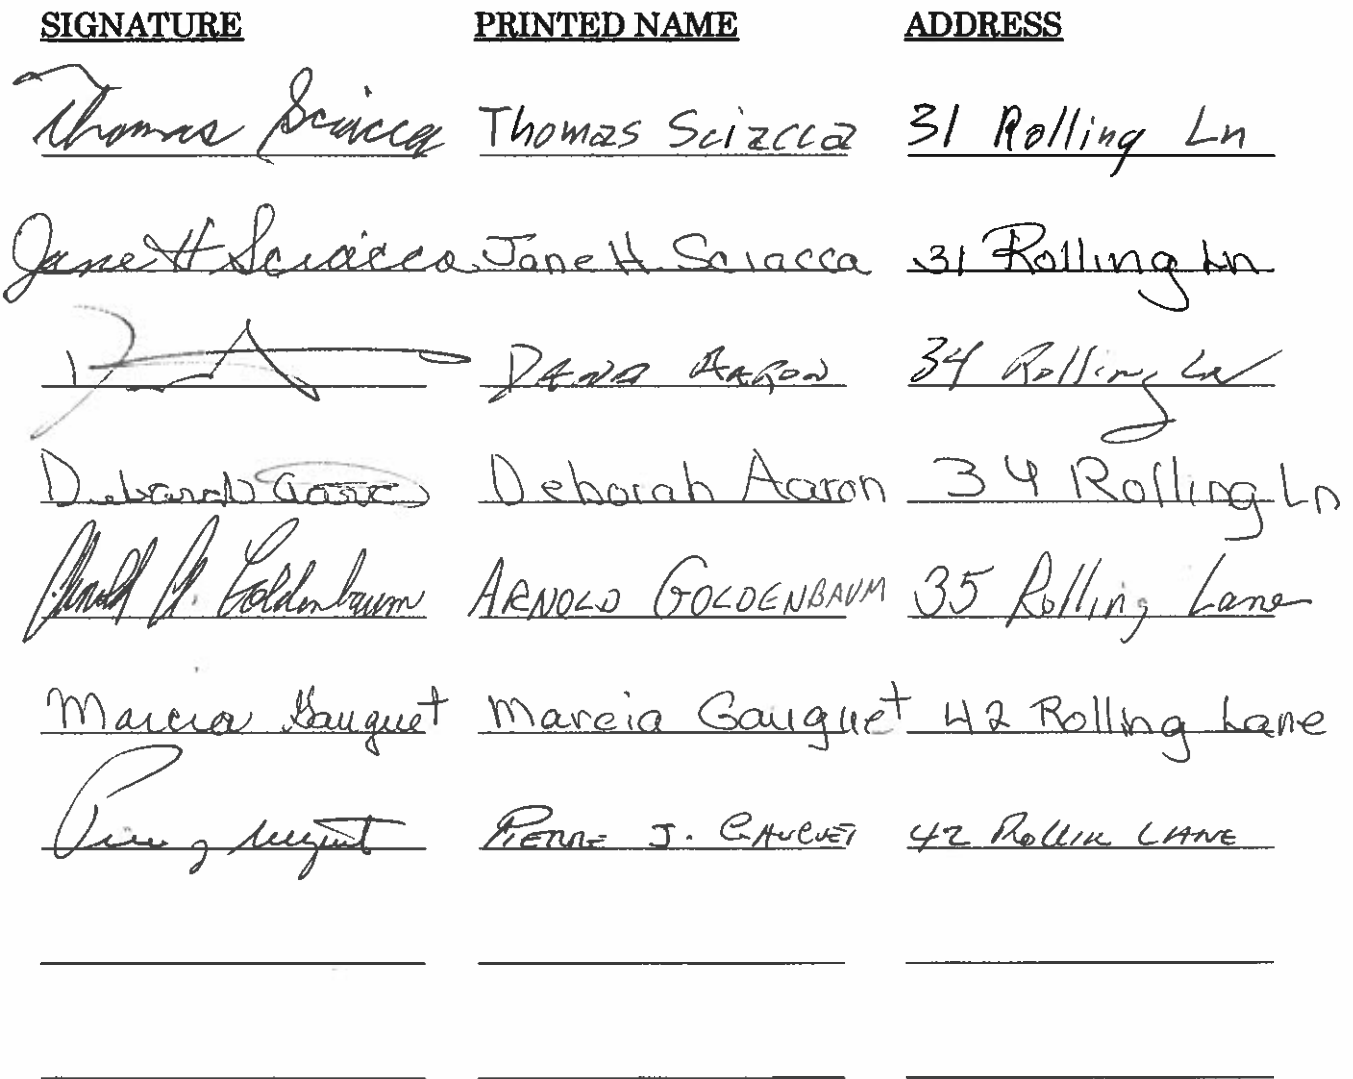 SIGNATURE PRINTED NAME ADDRESS
Thomas Sciacca Thomas Sciacca 31 Rolling Ln
Jane H Sciacca Jane H. Sciacca 31 Rolling Ln
Dana Aaron 34 Rolling Ln
Deborah Aaron Deborah Aaron 34 Rolling Ln
Arnold A. Goldenbaum ARNOLD GOLDENBAUM 35 Rolling Lane
Marcia Gauguet Marcia Gauguet 42 Rolling Lane
PIERRE J. GAUGUET 42 Rollin LANE